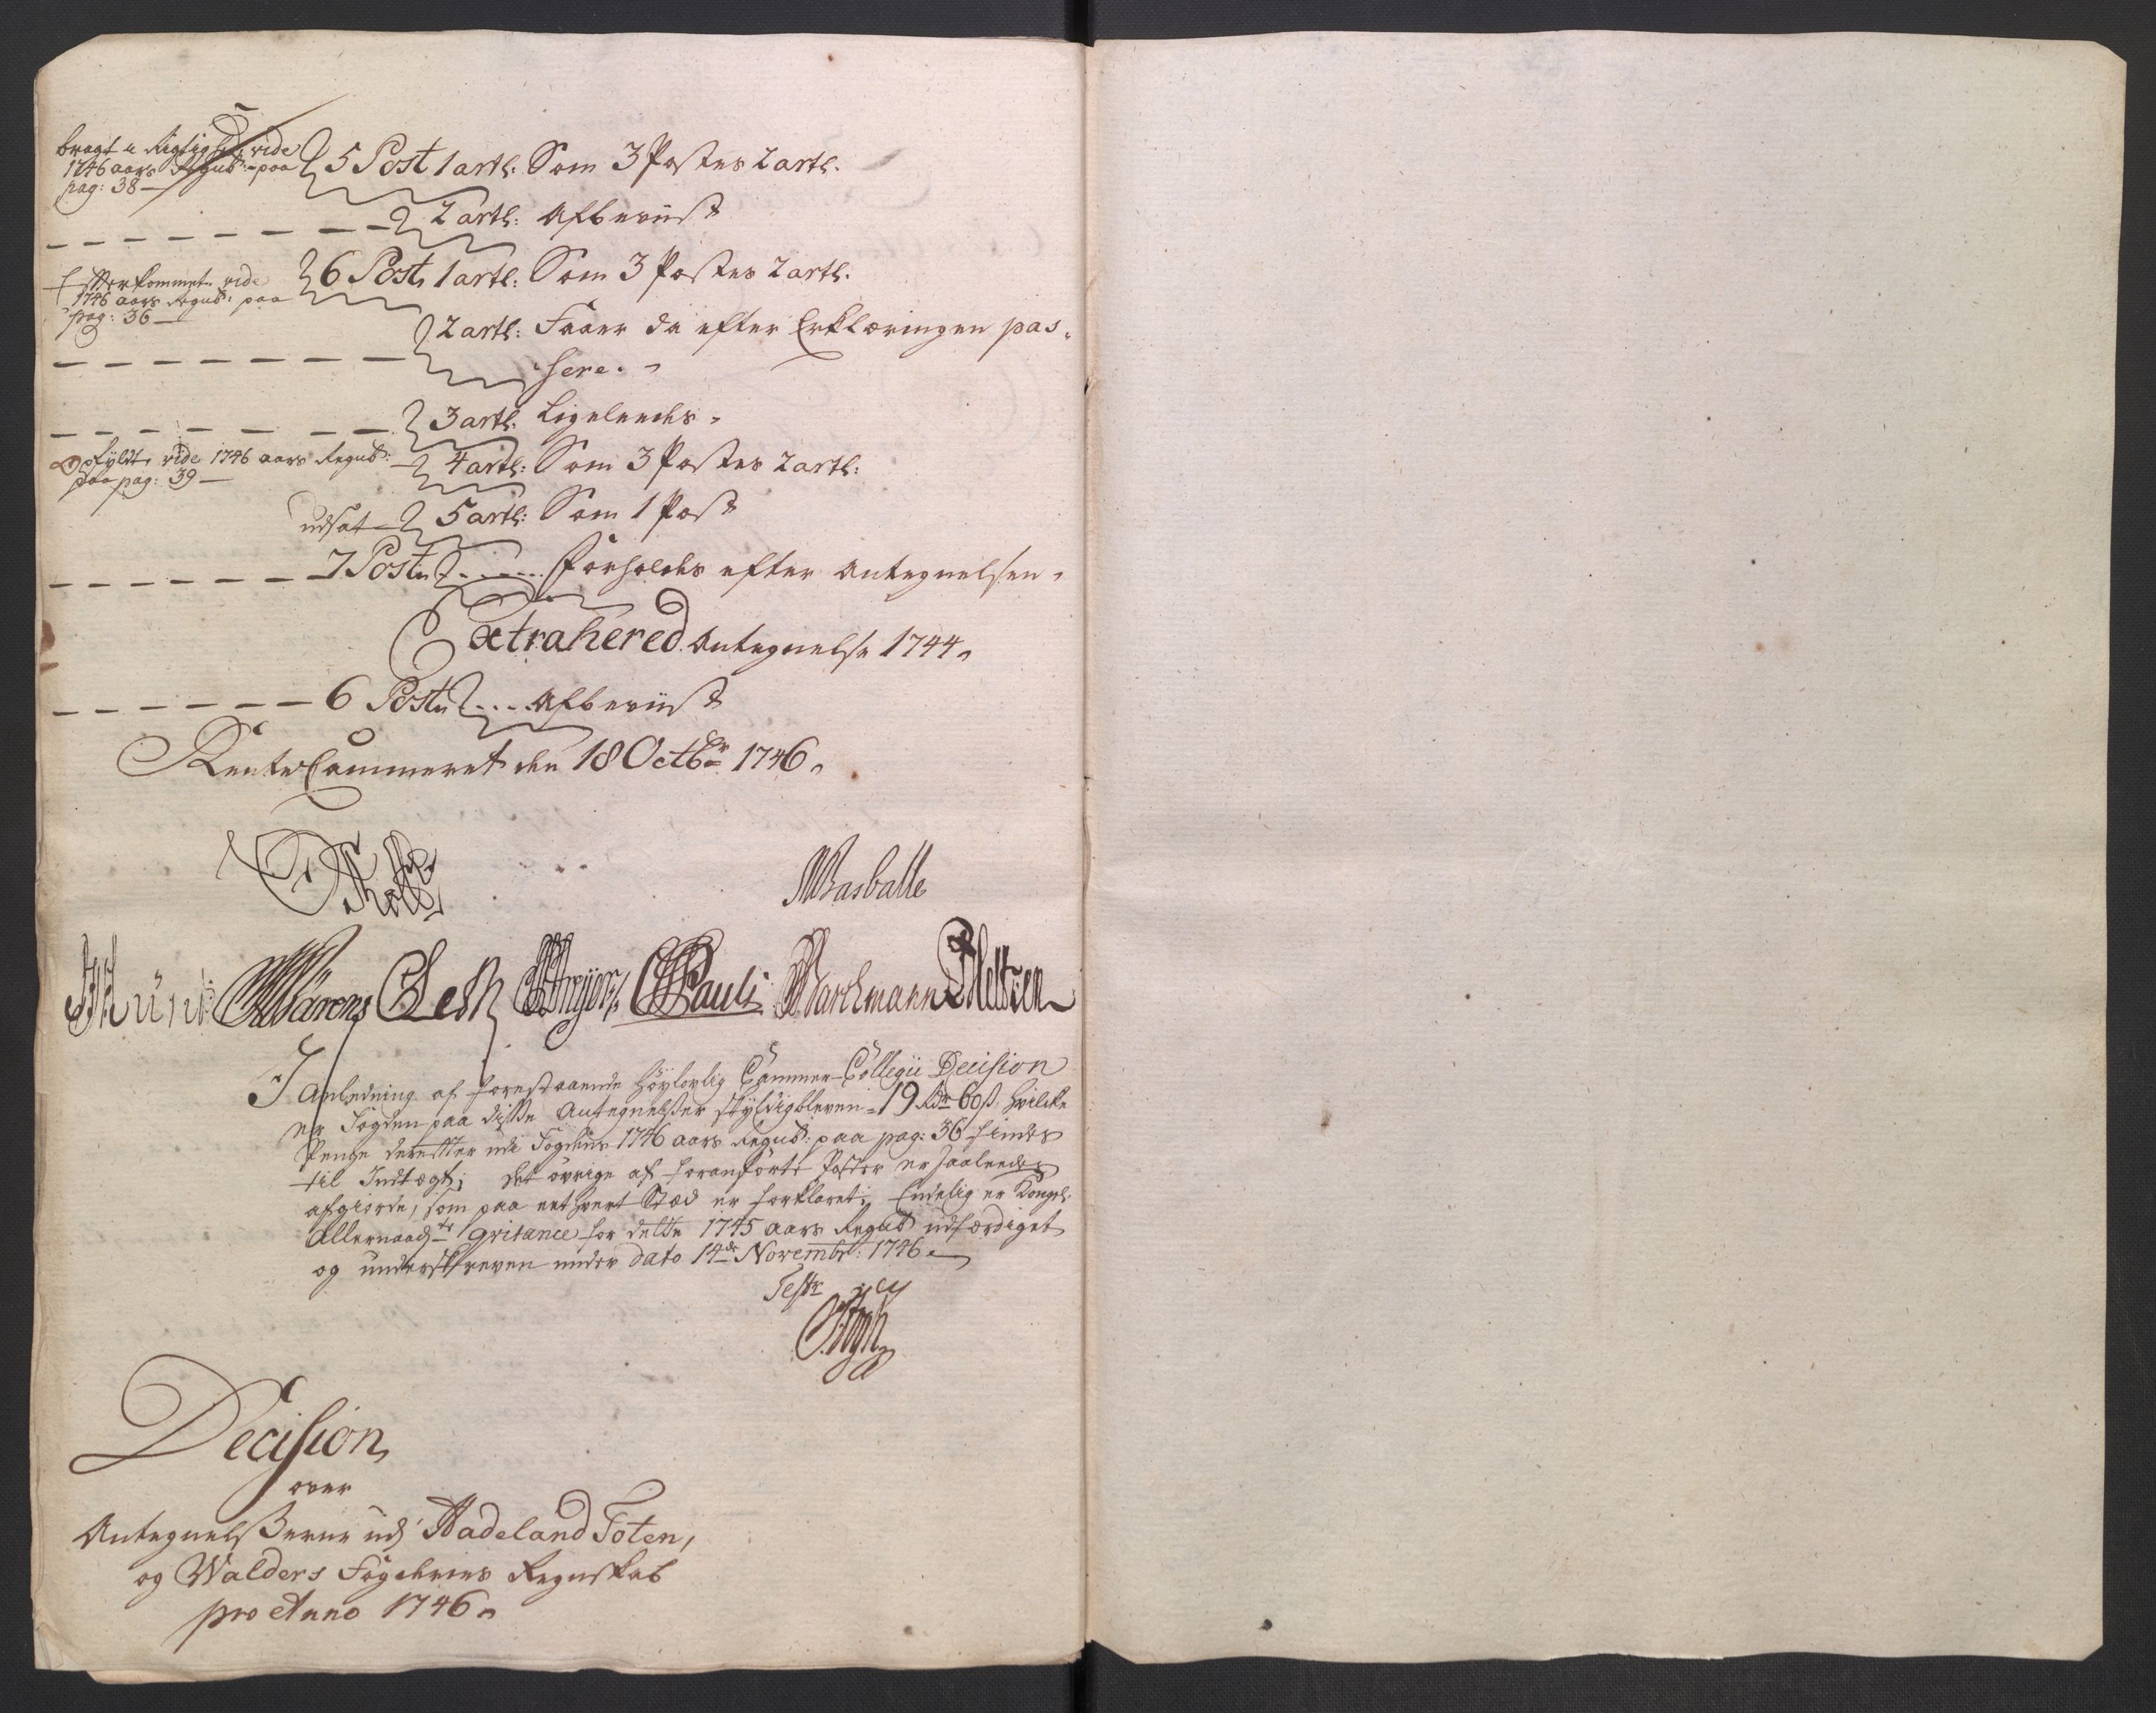 bragt i Rigtighed vide
1746 aars Regnsb: paa
pag: 38
5 Post 1 artl: Som 3 Postes 2 artl:
2 artl: Afbeviist
Efterkommet vide
1746 aars Regnsb: paa
pag: 36
6 Post, 1 artl: Som 3 Postes 2 artl:
2 artl: Faaer da efter Erklæringen pas-
sere.
3 artl: Ligeleedes
Opfyldt, vide 1746 aars Regnsb:
paa pag: 39
4 artl: Som 3 Postes 2 artl:
udsat
5 artl: Som 1 Post
7 Post Forholdes efter Antegnelsen
Extraherede Antegnelse 1744
6 Post Afbeviist
RenteCammeret den 18 Octbr 1746
Masballe
Münt Wärens Lesk Pauli Barchmann
I Anledning af forestaaende Høylovlig Cammer-Collegii Decision
er Fogden paa disse Antegnelser skyldigbleven 19 Rdr 60 ß, hvilke
Penge derefter udi Fogdens 1746 aars Regnsb: paa pag: 36 findes
til Indtægt; det øvrige af foranførte Poster er saaleedes
afgiorde, som paa eet hvert Stæd er forklaret; Endelig er Kongel:
Allernaadste qvitance for dette 1745 aars Regnsb udfærdiget
og underskreven under dato 14de Novembr: 1746
Testr
Decision
over
Antegnelsserne ud'i Hadeland Toten,
og Walders Fogderies Regnskab
pro Anno 1746